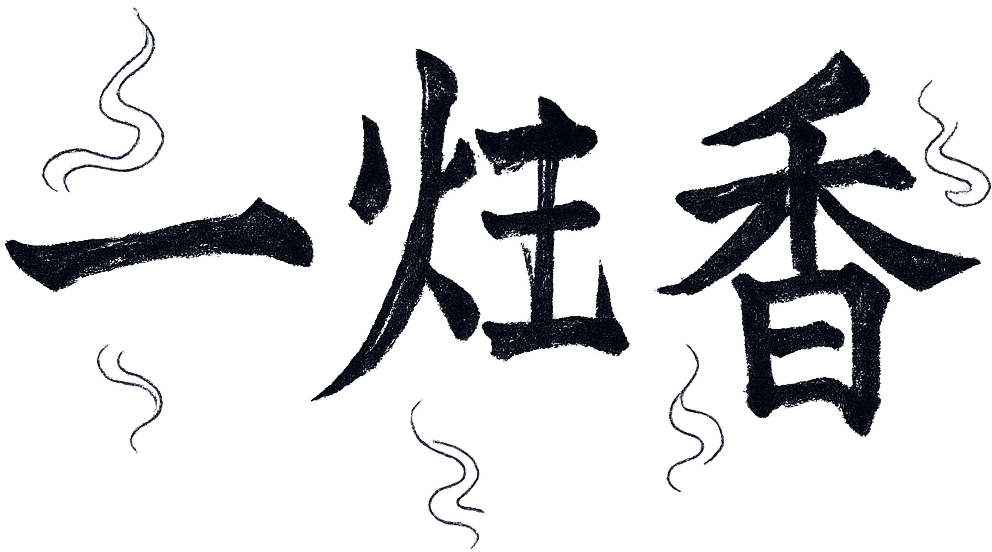 一炷香